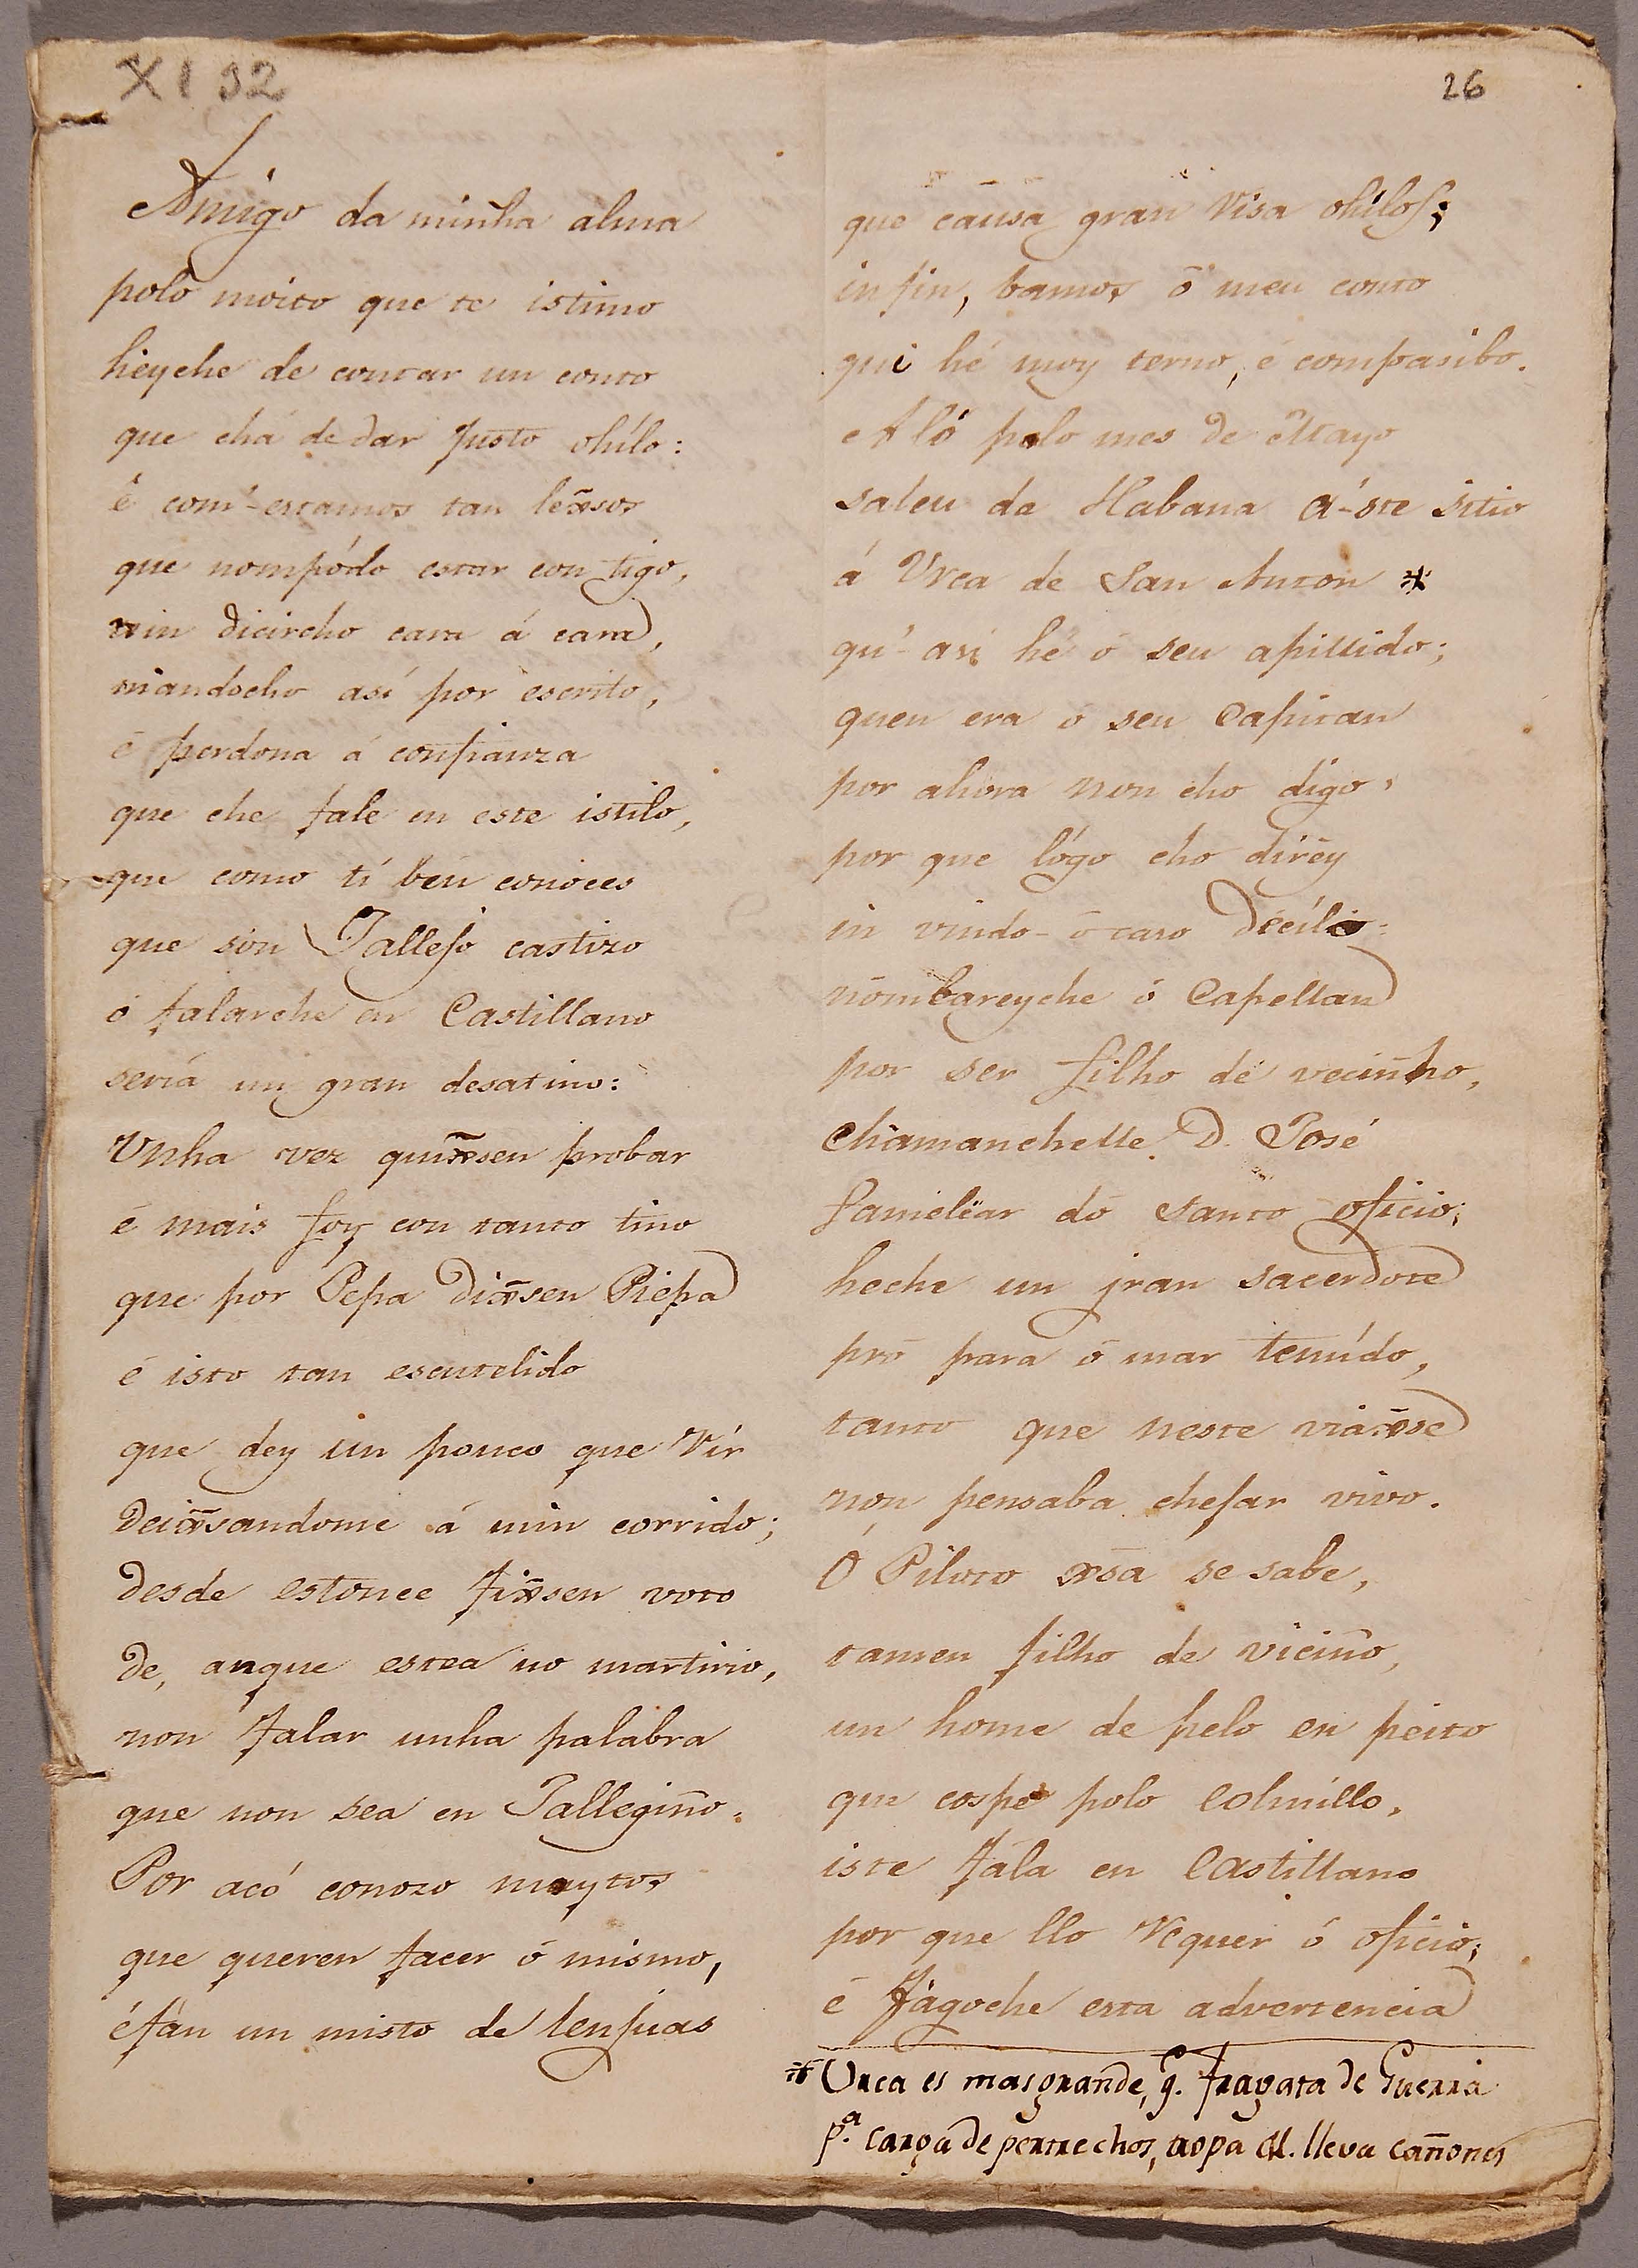 XI 32
26
Amigo da minha alma
polo moito que te istimo
heyche de contar un conto
que chá de dar justo ohílo:
é com-estamos tan lexsos
que nompódo estar con tigo,
nin dicircho cara á cara,
mandocho así por escrito,
é perdona á confianza
que che fale en este istilo,
que como tí ben conoces
que són Jallejo castizo
ó falarche en Castillano
sería un gran desatino:
Unha vez quixsen probar
é mais foy con tanto tino
que por Pepa dixsen Piepa
é isto tan escurelido
que dey un pouco que Rír
deixsandome á min corrido;
desde estonce fixsen voto
de, anque estea no martirio,
non falar unha palabra
que non sea en Jallegiño.
Por acó conozo muytos
que queren facer ó mismo,
é fán un misto de lenjuas
que causa gran Risa ohílos;
in fin, bamos ó meu conto
qui hé muy terno, é compasibo.
Aló polo mes de Mayo
saleu da Habana á-ste sitio
á Urca de San Anton *
qu-así hé o seu apillido;
quen era ó seu Capitan
por ahora non cho dígo,
por que lógo cho diréy
in vindo-ó caso
nombareyche ó Capellan
por ser filho de veciñho,
chamanchelle D. José
familiar dó santo oficio;
heche un jran sacerdote
pró para ó mar temído,
tanto que neste viaxse
non pensaba chejar vivo.
Ó Piloto xsa se sabe,
tamen filho de viciño,
un home de pelo en peito
que cospe polo colmillo,
iste fála en Castillano
por que llo Requer ó oficio;
é fágoche esta advertencia
* Urca es mas grande, q. fragata de Guerra
p.ª carga de pertrechos, tropa &. lleva cañones